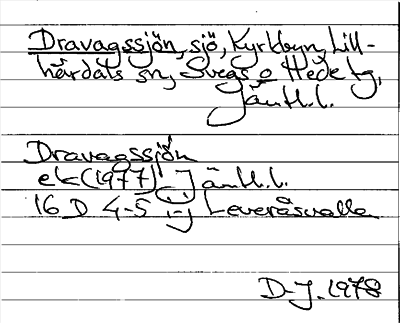 Dravagssjön, sjö, Kyrkbyn, Lill-
härdals sn, Svegs o Hede tg,
Jämtl.l.
Dravagssjön
ek(1977) Jämtl.l.
16 D 4-5 i-j Leveråsvalla
D-J. 1978